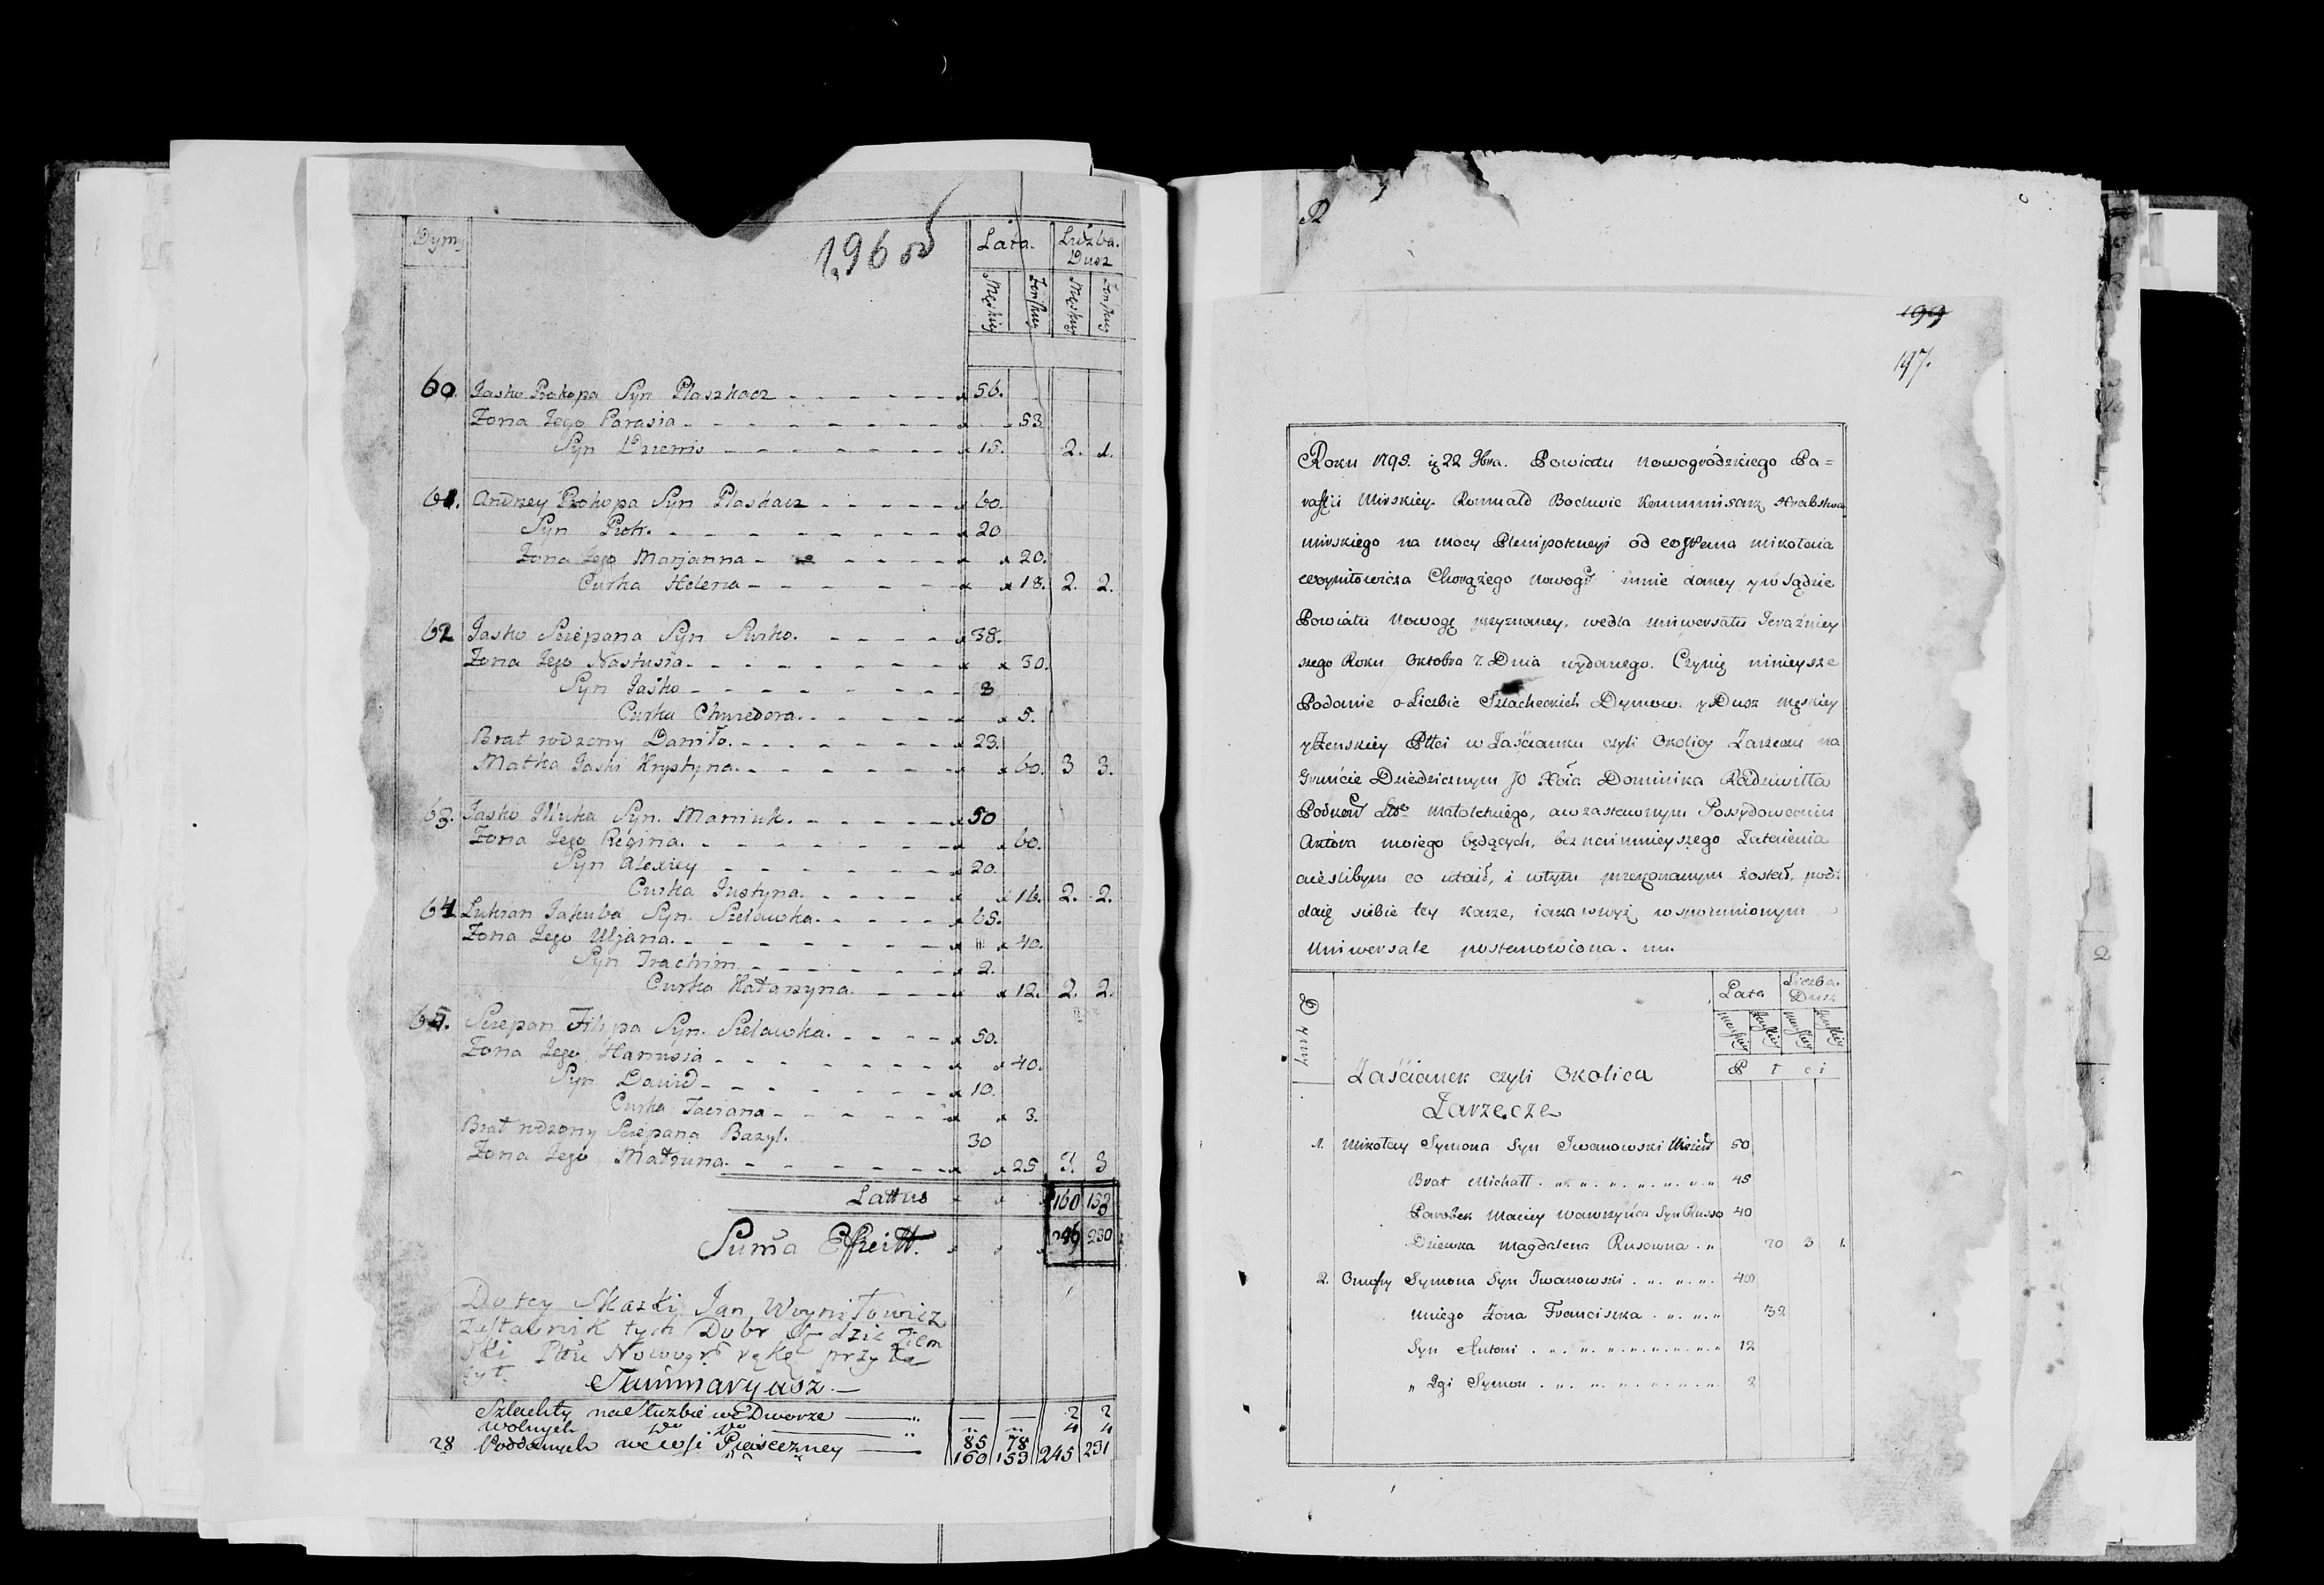 196 об
Dymy
Lata. Liczba. Dusz
Męskiey Żeńskiey Męskiey Żeńskiey
60. Jaśko Prokopa Syn Płaszkacz 56.
Żona Jego Parasia 53
Syn Dziemis 15. 2. 1.
61. Andrzey Prokopa Syn Płaskacz 60.
Syn Piotr. 20
Żona Jego Marjanna 20.
Curka Helena 18. 2. 2.
62 Jaśko Sczepana Syn 38.
Żona Jego Nastusia 30.
Syn Jaśko 8
Curka Chwiedora. 5.
Brat rodzony Daniło. 23.
Matka Jaśki Krystyna. 60. 3 3.
63. Jaśko Illuka Syn. Marniuk. 50
Żona Jego Regina. 60.
Syn Alexiey 20.
Curka Justyna. 16. 2. 2.
64 Łukian Jakuba Syn. Szelawka. 65.
Żona Jego Uljana. 40.
Syn Trachim 2.
Curka Katarzyna 12. 2. 2.
65. Sczepan Filipa Syn. Szelawka. 50.
Żona Jego Hanusia 40.
Syn Dawid 10.
Curka Taciana 3.
Brat rodzony Sczepana Bazyl. 30
Żona Jego Matruna. 25 3. 3
Lattus 160 153
Suma 230
Do tey Skazki Jan Woyniłowicz
Zastawnik tych Dobr Sędzic Ziem
ski Pttu Nowogr rękę przyło
żył.
Summaryusz.
Szlachty na Służbie we Dworze 2 2
Wolnych do do 4 4
28 Poddanych we wsi Pieiseczney 85 78
160 153 245 231
199
197.
Roku 1795. ią 22 9bra. Powiatu Nowogródzkiego Pa=
rafii Mirskiey. Romuald Bochwic Kommmisarz Hrabstwa
mirskiego na mocy Plenipotencyi od Mikołaia
Woyniłowicza Chorążego Nowogr mnie daney y w Sądzie
Powiatu Nowogr przyznaney, wedla uniwersału Teraźniey
szego Roku Oktobra 7. Dnia wydanego. Czynię ninieysze
Podanie o Liczbie Szlacheckich Dymow. y Dusz męskiey
y Żenskiey Płci w Zaścianku czyli Okolicy Zarzeczu na
Gruncie Dziedzicznym JO Xcia Dominika Radziwiłła
Podkow Litto Małoletniego, a w zastawnym Possydowaniu
Aktora moiego będących, bez naymnieyszego Zataienia
a ieslibym co utaił, i w tym przekonanym został, pod:
daię siebie tey karze, iaka w wyż wspomnionym
Uniwersale postanowiona. mn.
Dymy
Lata Liczba. Dusz
Męskiey Żenskiey Męskiey Żenskiey
P ł c i
Zaścianek czyli Okolica
Zarzecze
1. Mikołay Symona Syn Iwanowski 50
Brat Michałł 45
Parobek Maciey Wawrzyńca Syn Russo 40
Dziewka Magdalena Rusowna 20 3 1.
2. Onufry Symona Syn Iwanowski 40
u niego Żona Franciszka 32
Syn Antoni 12
" 2gi Symon 2